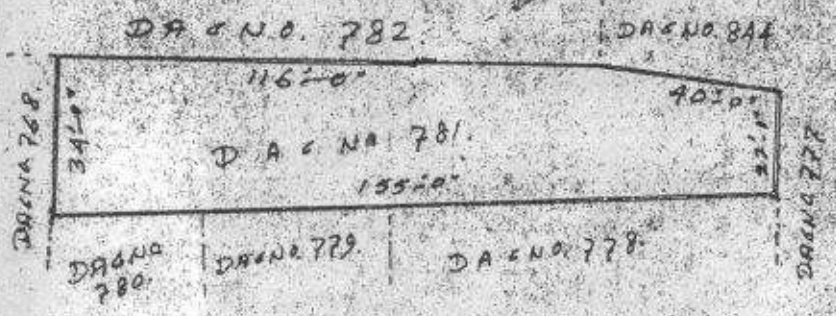 DAG NO. 782
DAG NO. 844
116'-0"
40'-0"
DAG NO. 768.
34'-0"
DAG NO. 781.
155'-0"
DAG NO. 777
DAG NO.
780.
DAG NO. 779.
DAG NO. 778.